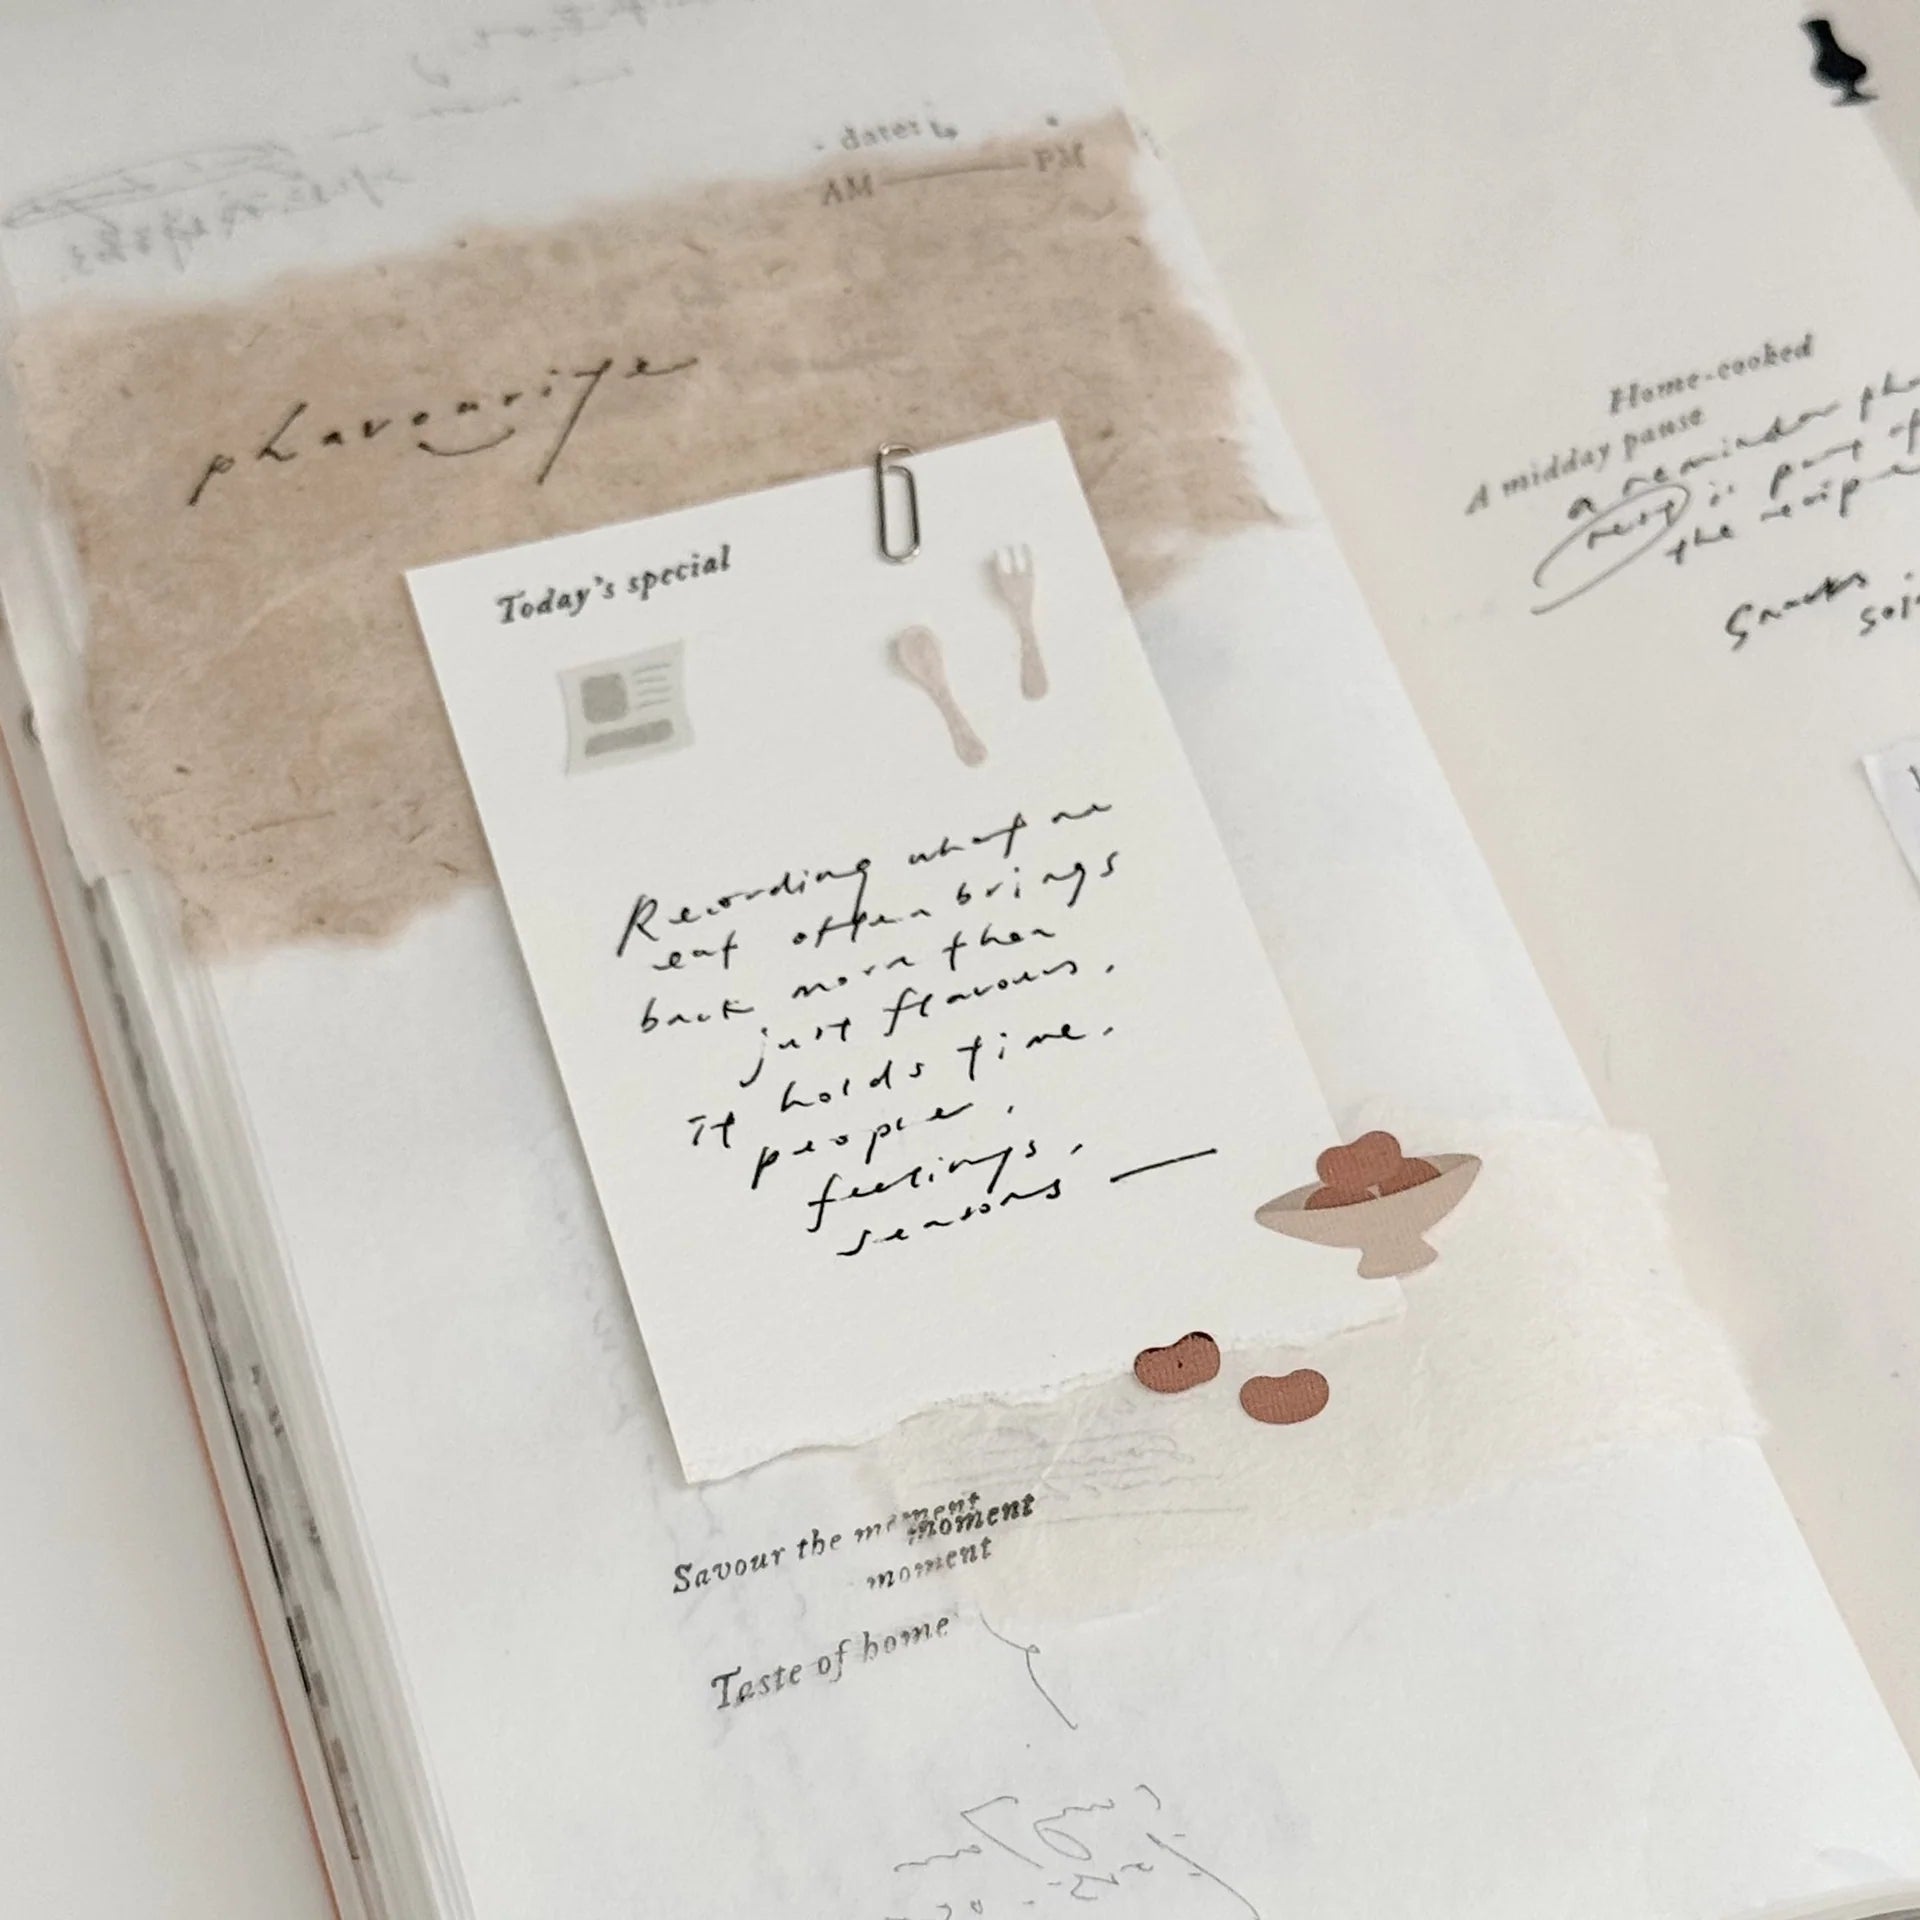 date:
AM PM
phavourite
Today's special
Recording what we
eat often brings
back more than
just flavours.
it holds time.
people.
feelings.
seasons —
Savour the moment
moment
moment
Taste of home
Home-cooked
A midday pause
a reminder
rest is part of
the recipe
Snacks